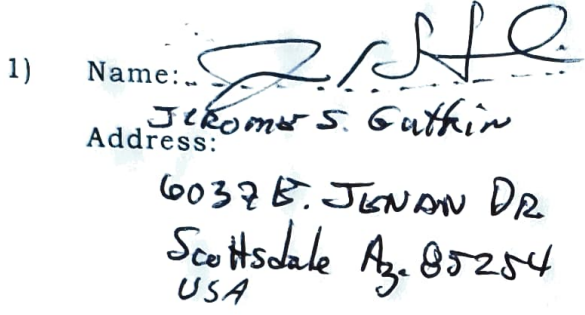 1) Name:
Jerome S. Gutkin
Address:
6037 E. JENAN DR
Scottsdale Az. 85254
USA